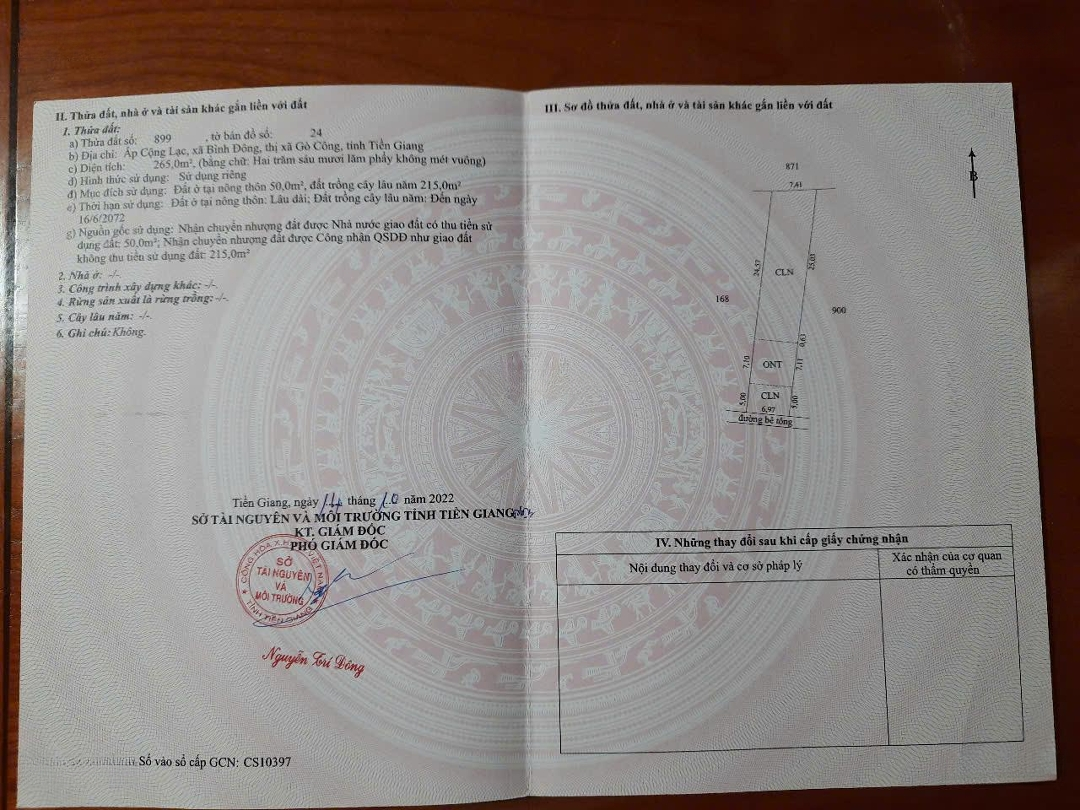 II. Thửa đất, nhà ở và tài sản khác gắn liền với đất
1. Thửa đất:
a) Thửa đất số: 899 , tờ bản đồ số: 24
b) Địa chỉ: Ấp Cộng Lạc, xã Bình Đông, thị xã Gò Công, tỉnh Tiền Giang
c) Diện tích: 265,0m², (bằng chữ: Hai trăm sáu mươi lăm phẩy không mét vuông)
d) Hình thức sử dụng: Sử dụng riêng
đ) Mục đích sử dụng: Đất ở tại nông thôn 50,0m², đất trồng cây lâu năm 215,0m²
e) Thời hạn sử dụng: Đất ở tại nông thôn: Lâu dài; Đất trồng cây lâu năm: Đến ngày
16/6/2072
g) Nguồn gốc sử dụng: Nhận chuyển nhượng đất được Nhà nước giao đất có thu tiền sử
dụng đất: 50,0m²; Nhận chuyển nhượng đất được Công nhận QSDĐ như giao đất
không thu tiền sử dụng đất: 215,0m²
2. Nhà ở: -/-
3. Công trình xây dựng khác: -/-.
4. Rừng sản xuất là rừng trồng: -/-.
5. Cây lâu năm: -/-
6. Ghi chú: Không.
Tiền Giang, ngày 14 tháng 10 năm 2022
SỞ TÀI NGUYÊN VÀ MÔI TRƯỜNG TỈNH TIỀN GIANG
KT. GIÁM ĐỐC
PHÓ GIÁM ĐỐC
CỘNG HÒA X.H.C.N VIỆT NAM
SỞ
TÀI NGUYÊN
VÀ
MÔI TRƯỜNG
TỈNH TIỀN GIANG
Nguyễn Trí Dõng
Số vào sổ cấp GCN: CS10397
III. Sơ đồ thửa đất, nhà ở và tài sản khác gắn liền với đất
B
871
7,41
24,57
CLN
25,03
168
900
0,63
7,10
ONT
7,11
5,00
CLN
5,00
6,97
đường bê tông
IV. Những thay đổi sau khi cấp giấy chứng nhận
Nội dung thay đổi và cơ sở pháp lý
Xác nhận của cơ quan
có thẩm quyền